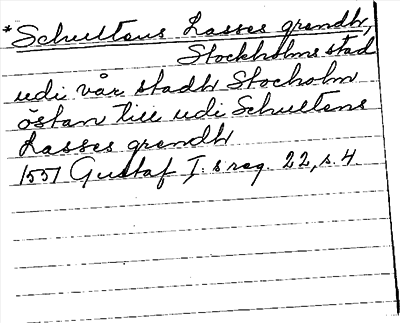 *Schultens Lasses grendh,
Stockholms stad
udi vår stadh Stocholm
östan till udi Schultens
Lasses grendh
1551 Gustaf I:s reg. 22, s. 4